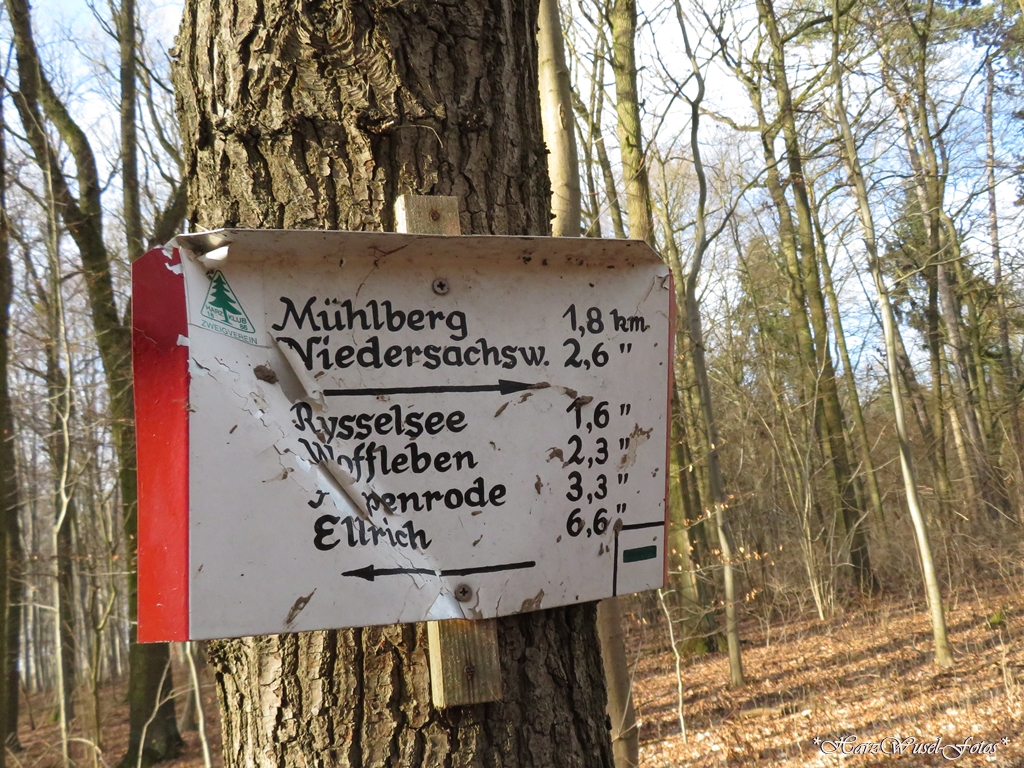 HARZKLUB
18 86
ZWEIGVEREIN
Mühlberg 1,8 km
Niedersachsw. 2,6 "
Rysselsee 1,6 "
Woffleben 2,3 "
3,3 "
Ellrich 6,6 "
*HarzWusel-Fotos*